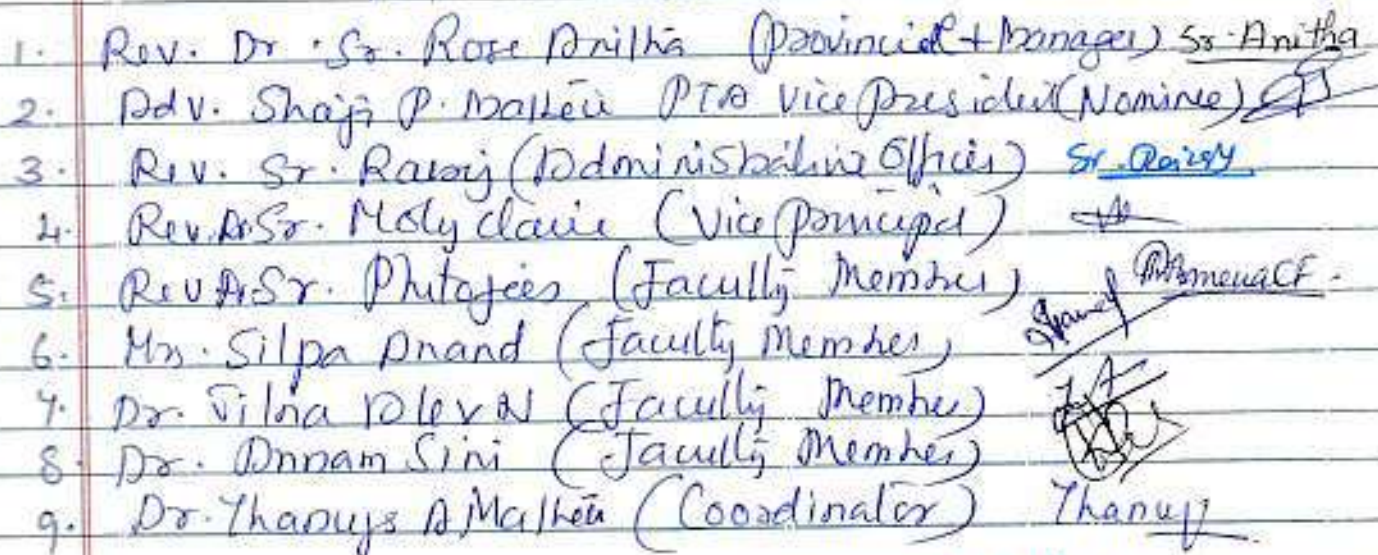 1. Rev. Dr. Sr. Rose Anitha (Provincial + Manager) Sr. Anitha
2. Adv. Shaji P. Mathew PTA Vice President (Nominee)
3. Rev. Sr. (Administrative Officer)
4. Rev. Dr. Sr. Moly Clare (Vice Principal)
5. Rev. Dr. Sr. (Faculty Member)
6. Mrs. Silpa Anand (Faculty Member)
7. Dr. (Faculty Member)
8. Dr. Annam Sini (Faculty Member)
9. Dr. Thanuja A Mathew (Coordinator)